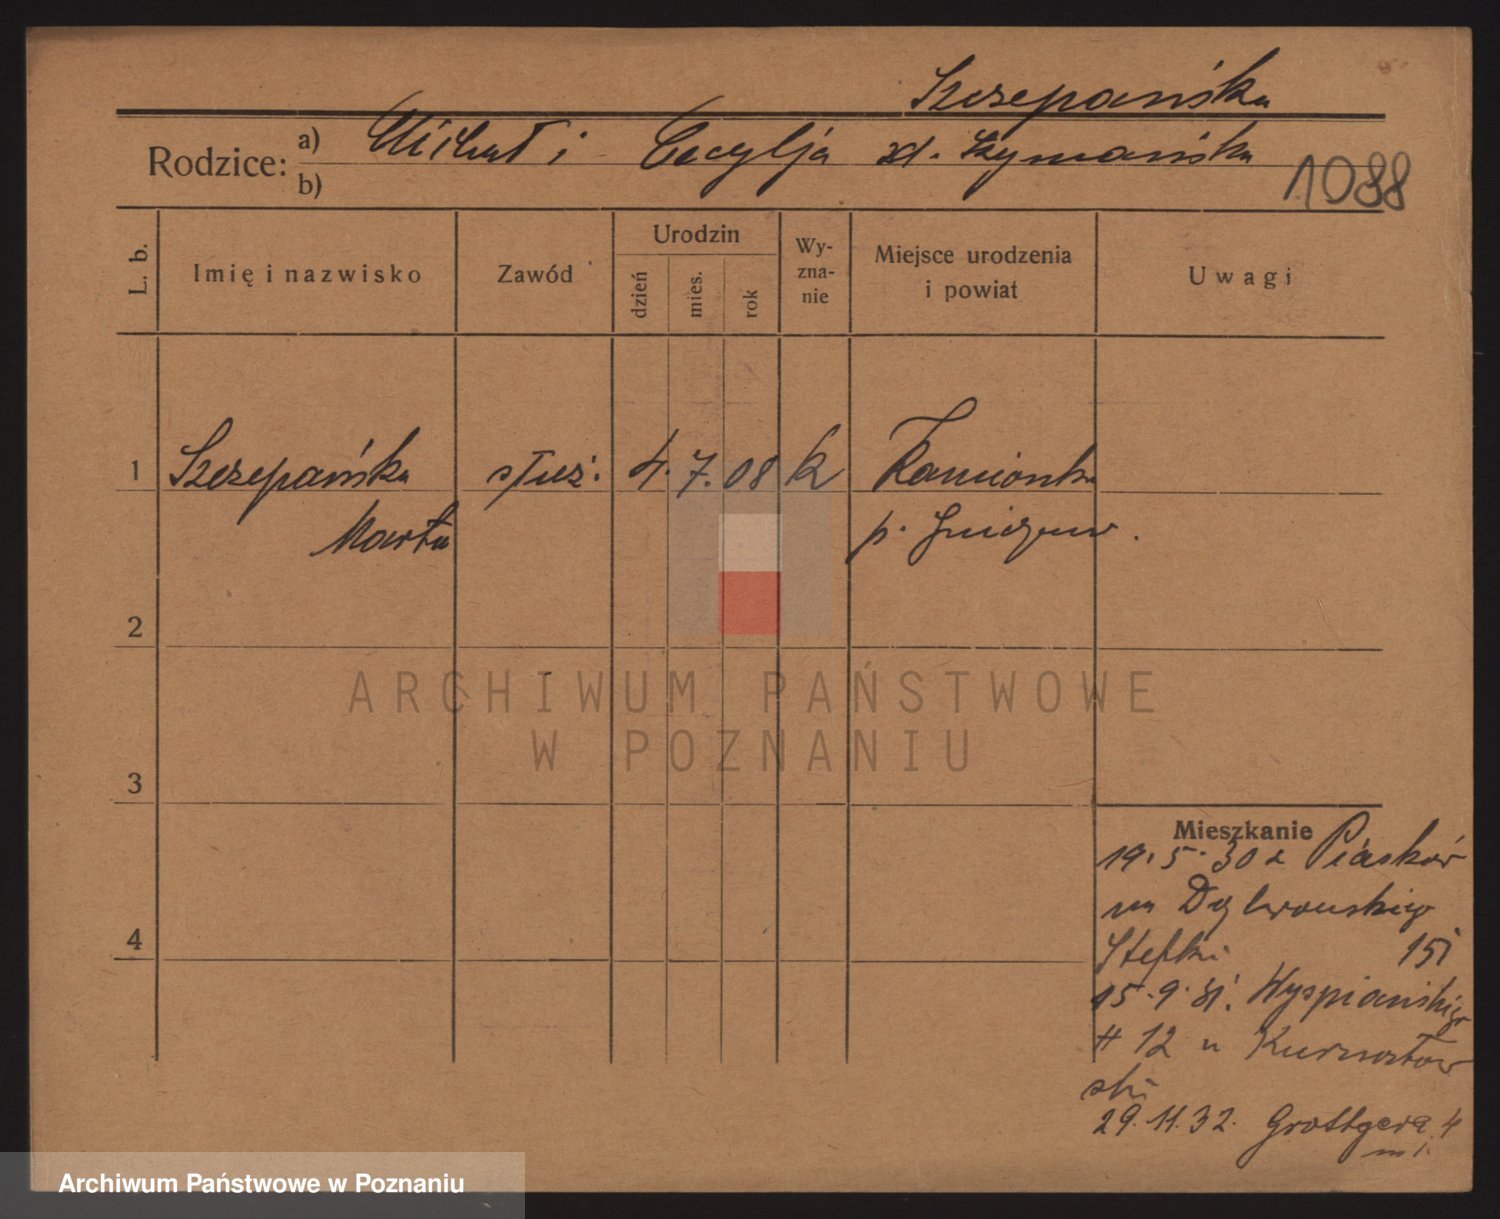 Szczepańska
Rodzice: a) Michał i Cecylja zd. Szymańska
b)
1088
L. b.
Imię i nazwisko
Zawód
Urodzin
dzień
mies.
rok
Wy-
zna-
nie
Miejsce urodzenia
i powiat
Uwagi
1 Szczepańska służ. 4. 7. 08 k Kamionka
Marta p. Gniezno.
2
3
4
ARCHIWUM PAŃSTWOWE
W POZNANIU
Mieszkanie
19.5.30 z Piasków
na Dąbrowskiego
15
15.9.31. Wyspiańskiego
12 u
ski
29.11.32. Grottgera 4
m 1.
Archiwum Państwowe w Poznaniu